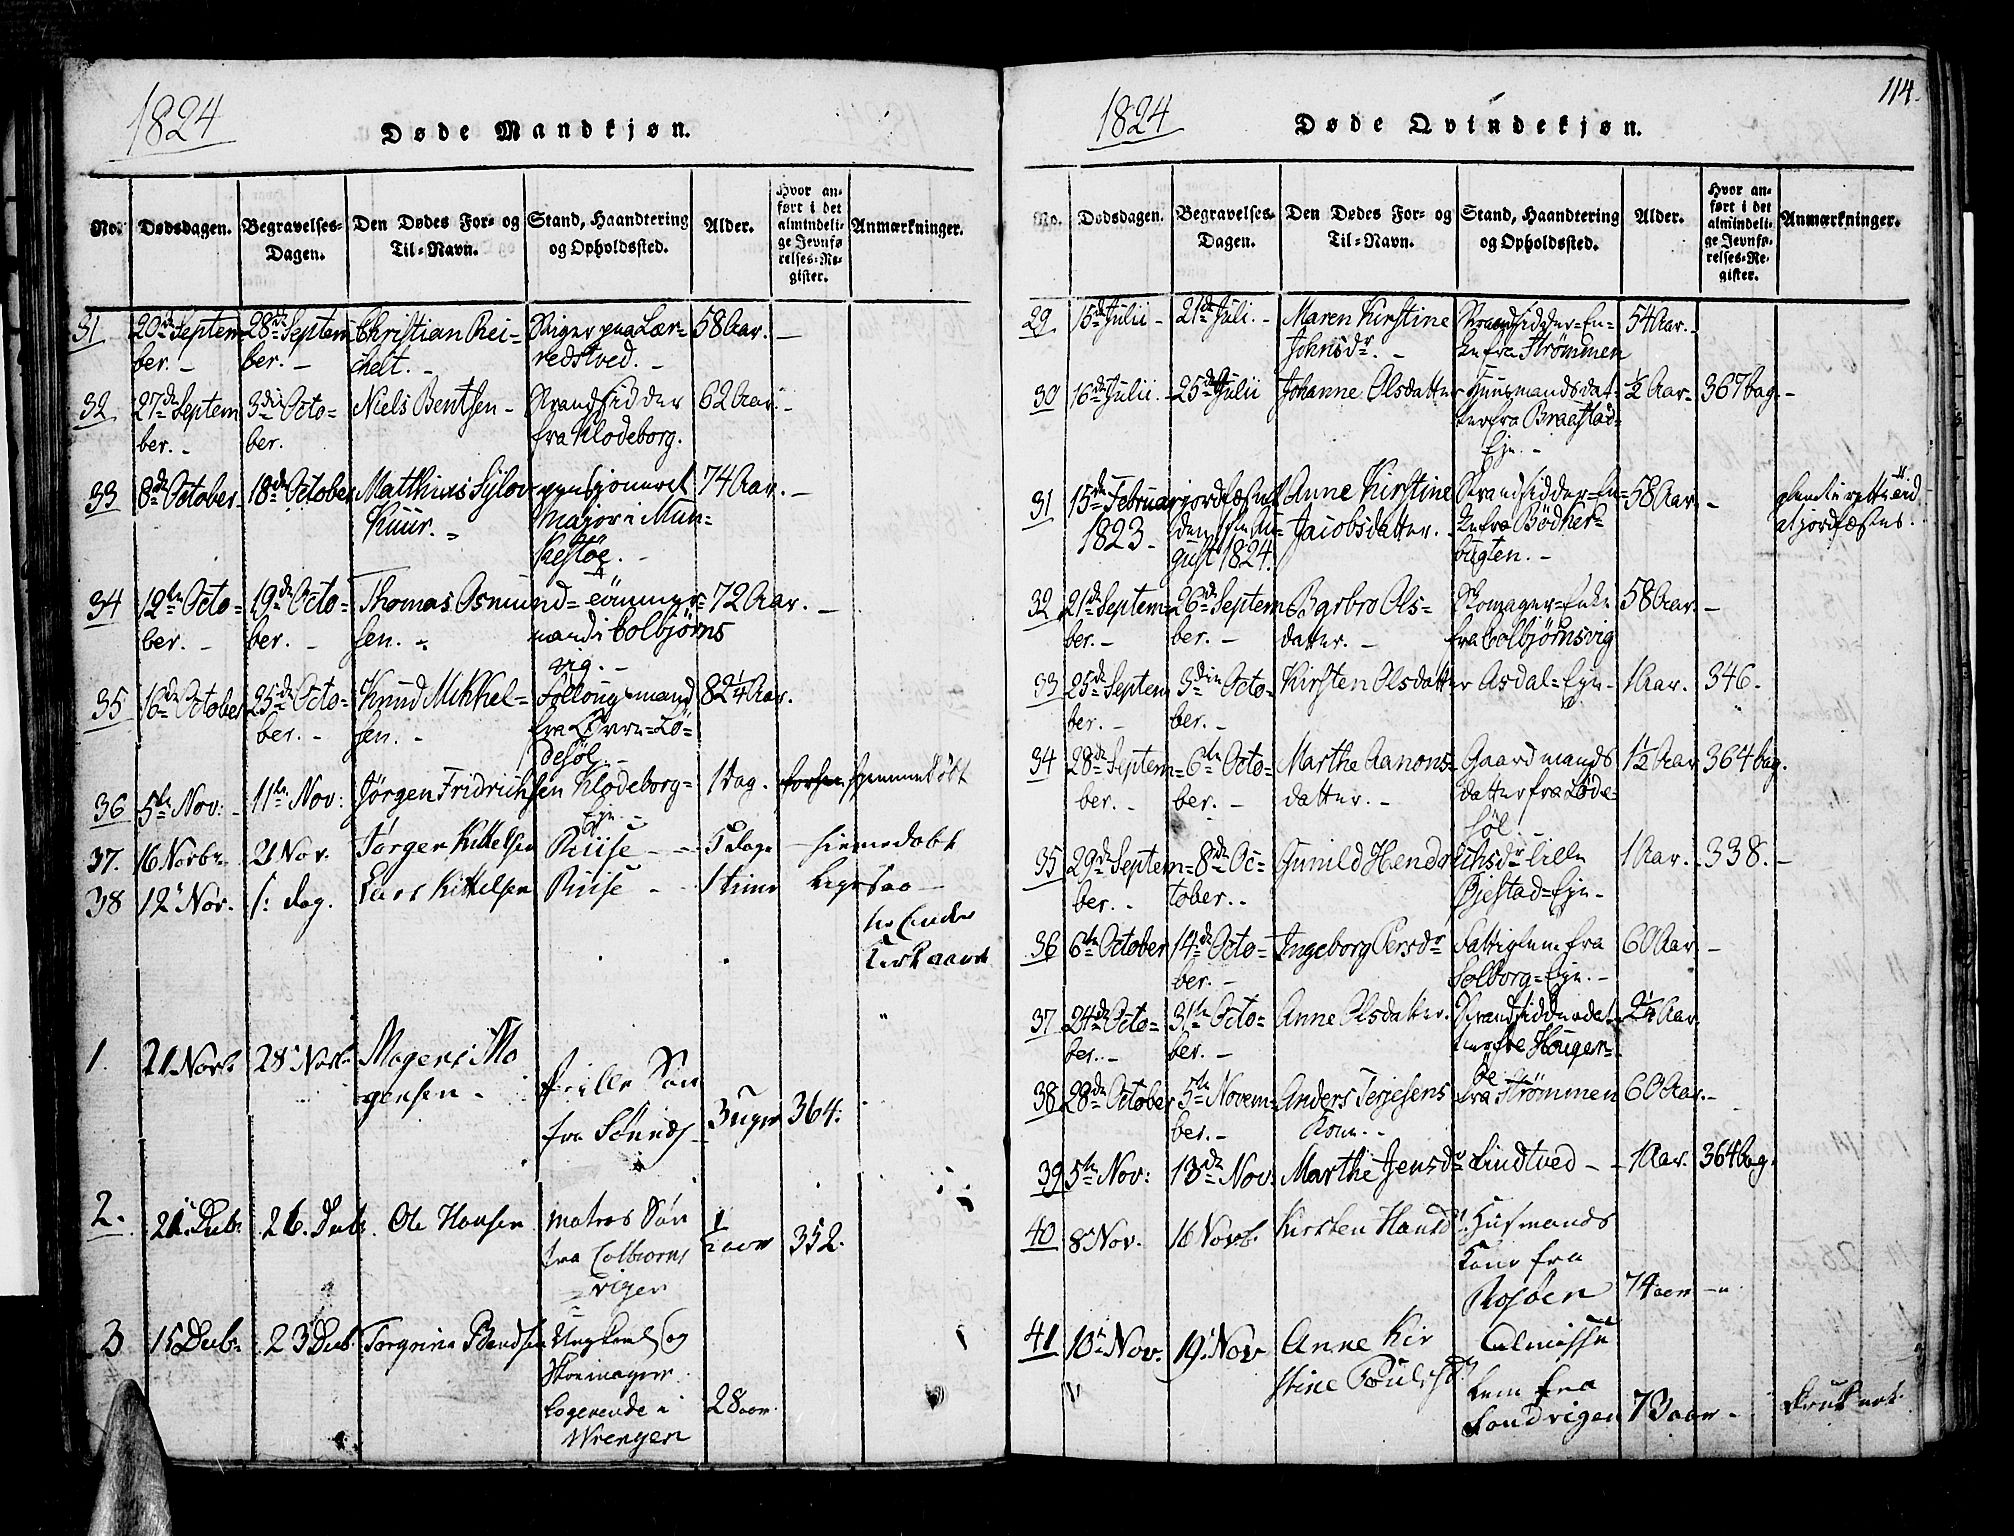 1824
Døde Mandkjøn.
No. Dødsdagen. Begravelses-Dagen. Den Dødes For- og Til-Navn. Stand, Haandtering og Opholdssted. Alder. Hvor anført i det almindelige Jevnførelses-Register. Anmærkninger.
31 20de September.- 28de September.- Christian Reichelt.- paa Lærredstved.- 58 Aar.-
32 27de September.- 3die October. Niels Bentsen- Strandsidder fra Klodeborg. 62 Aar.-
33 8de October 18de October Matthias Sylov Kuur.- pensjoneret Major i Munkestøe.- 74 Aar.-
34 12te October.- 19de October.- Thomas Osmundsen.- Tømmermand i Colbjørnsvig.- 72 Aar.-
35 16de October 25de October.- Knud Mikkelsen.- fra Lødesøl.- 82¼ Aar.
36 5te Nov:- 11te Nov: Jørgen Fridrichsen Klodeborg=Eje.- 1 Dag. hjemmedøbt
37. 16 Novbr 21 Nov. Jørgen Kittelsen Riise 5 dage - hiemedøbt
38 12 Nov. s: dag. Lars Kittelsen Riise - 1 time ligesaa
Kirkegaard
1. 21 Novb. 28 Novb. Mogens Mogensen- Søn fra 3 uger 364.
2. 21. Decb. 26. Decb. Ole Hansen matros Søn fra Colbiørnsvigen ½ aar 352.
3 15 Decb. 23 Decb. Ungkarl og Skomager Logerende i Wrengen 28 aar.
114.
1824
Døde Qvindekjøn.
No. Dødsdagen. Begravelses-Dagen. Den Dødes For- og Til-Navn. Stand, Haandtering og Opholdssted. Alder. Hvor anført i det almindelige Jevnførelses-Register. Anmærkninger.
29 15de Julii- 21de Juli.- Maren Kirstine Johnsdr.- Strandsidder=Enke fra Strømmen 54 Aar.-
30 16de Julii.- 25de Julii Johanne Olsdatter Huusmandsdatter fra Braastad=Eje.- ½ Aar- 367 bag.-
31 15de Februar 1823.- jordfæstet den August 1824. Anne Kirstine Jacobsdatter.- Strandsidder=Enke fra Bødkerbugten.- 58 Aar.- at jordfæstes.
32 21de September.- 26de September.- Barbro Olsdatter.- Skomager=Enke fra Colbjørnsvig 58 Aar.-
33 25de September.- 3die October.- Kirsten Olsdatter Asdal=Eje- 1 Aar. 346.
34 28de September.- 6te October.- Marthe Aanonsdatter.- Gaardmands datter fra Lødesøl.- 1½ Aar 364 bag.
35 29de September.- 8de October.- Gunild Hendrichsdr lille Bjestad=Eje- 1 Aar.- 338.-
36 6te October 14de October.- Ingeborg Persdr Fattiglem fra Solborg=Eje.- 60 Aar-
37 24de October.- 31te October.- Anne Olsdatter. Strandsidderdatter fra Hougenøe 2¼ Aar.
38 28de October 5te November.- Anders Terjesens Kone.- fra Strømmen 60 Aar.-
39 5te Nov: 13de Nov: Marthe Jensdr Lindtved- 1 Aar. 364 bag.
40 8 Nov. 16 Novb. Kirsten Hansd. Husmands Kone fra Rosøen 74 aar
41 10 Nov. 19. Nov Anne Kirstine Poulsd. Almisse Lem fra Sandvigen 73 aar-